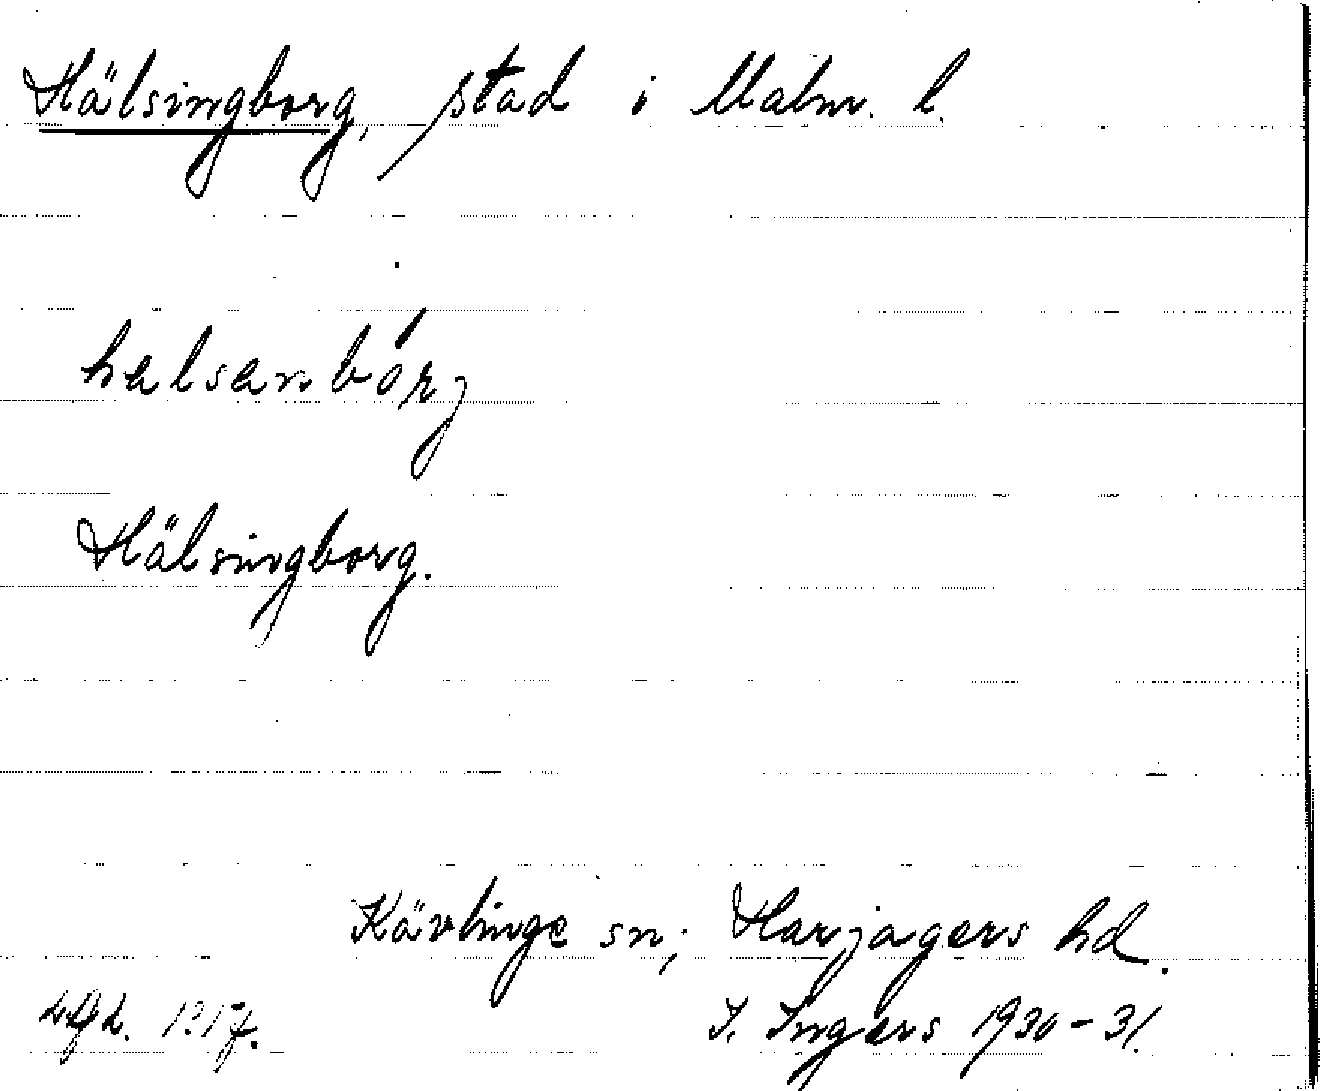 Hälsingborg, stad i Malm. l.
halsanbórj
Hälsingborg.
Kävlinge sn; Harjagers hd.
I. Ingers 1930-31.